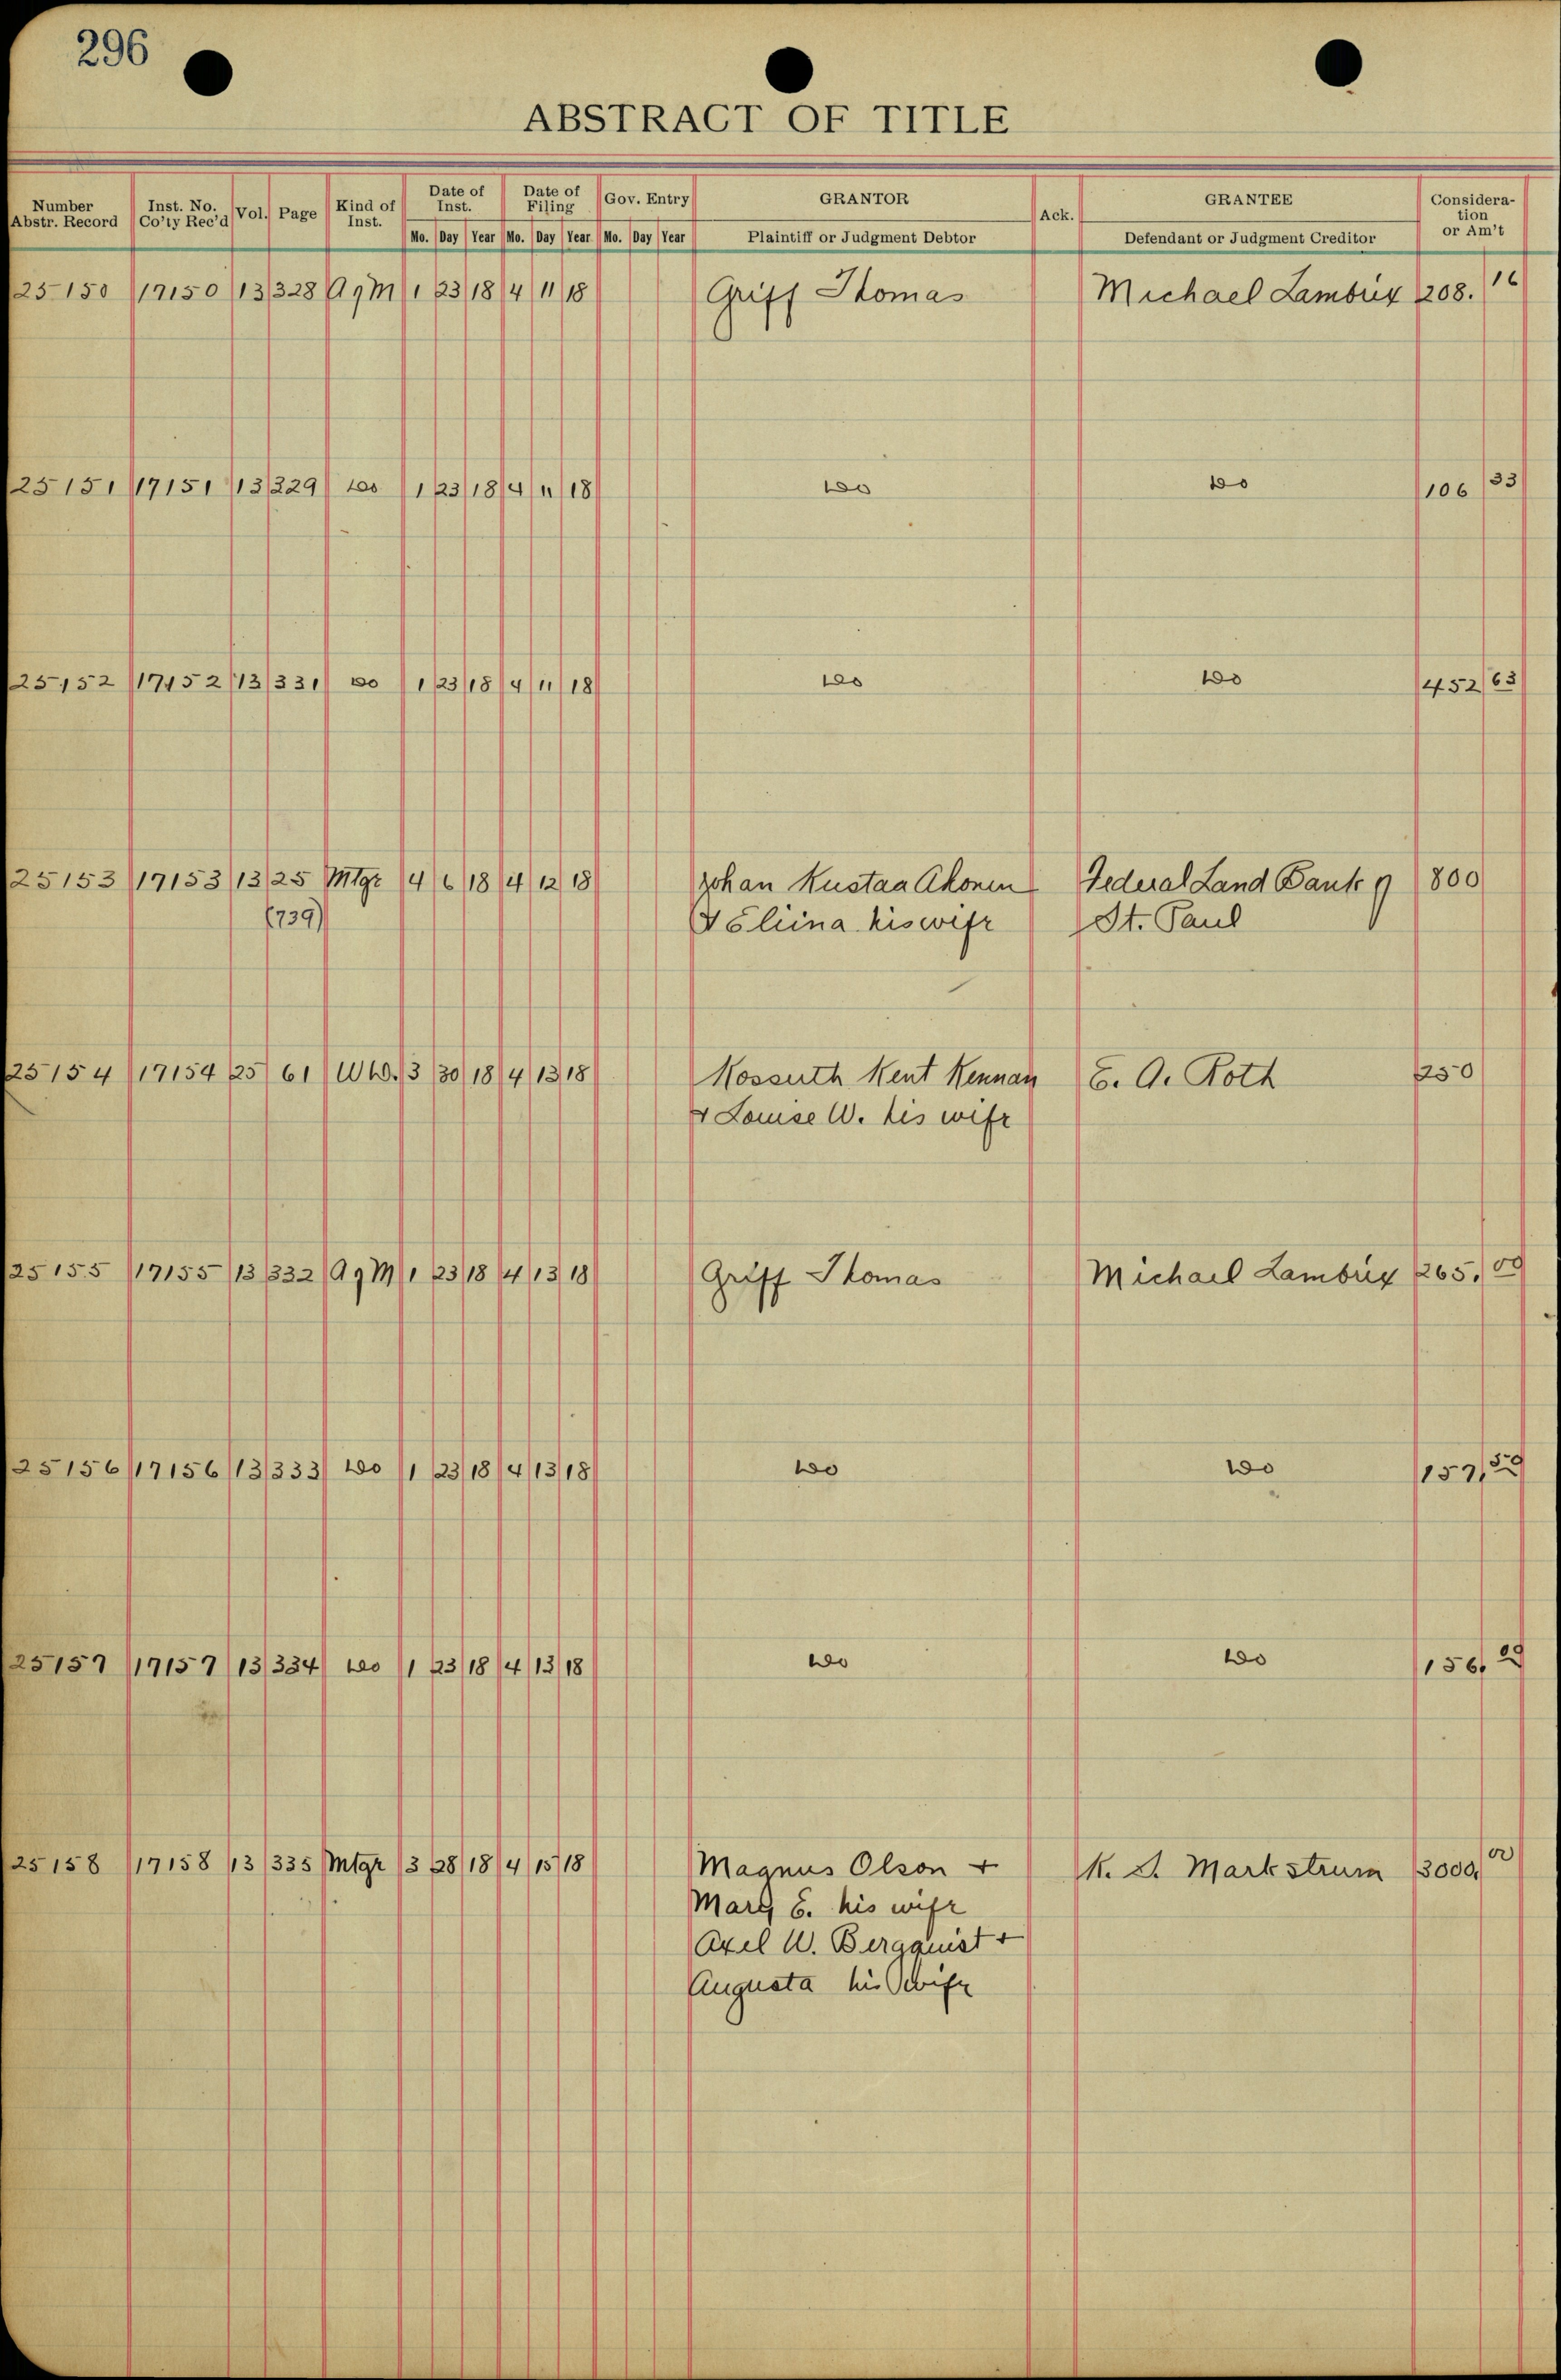 296
ABSTRACT OF TITLE
Number Abstr. Record Inst. No. Co'ty Rec'd Vol. Page Kind of Inst. Date of Inst. Date of Filing Gov. Entry GRANTOR Ack. GRANTEE Consideration or Am't
Mo. Day Year Mo. Day Year Mo. Day Year Plaintiff or Judgment Debtor Defendant or Judgment Creditor
25150 17150 13 328 AgM 1 23 18 4 11 18 Griff Thomas Michael Lambrix 208. 16
25151 17151 13 229 do 1 23 18 4 11 18 do do 106 33
25152 17152 13 331 do 1 23 18 4 11 18 do do 452 63
25153 17153 13 25 Mtge 4 6 18 4 12 18 Johan Kustaa Ahonen Federal Land Bank of 800
(739) & Eliina his wife St. Paul
25154 17154 25 61 WD. 3 30 18 4 13 18 Kossuth Kent Kennan E. A. Roth 250
& Louise W. his wife
25155 17155 13 332 AgM 1 23 18 4 13 18 Griff Thomas Michael Lambrix 265.
25156 17156 13 333 do 1 23 18 4 13 18 do do 157,
25157 17157 13 334 do 1 23 18 4 13 18 do do 156.
25158 17158 13 335 Mtge 3 28 18 4 15 18 Magnus Olson + K. S. Markstrum 3000. 00
Mary E. his wife
Axel W. Bergquist +
Augusta his wife